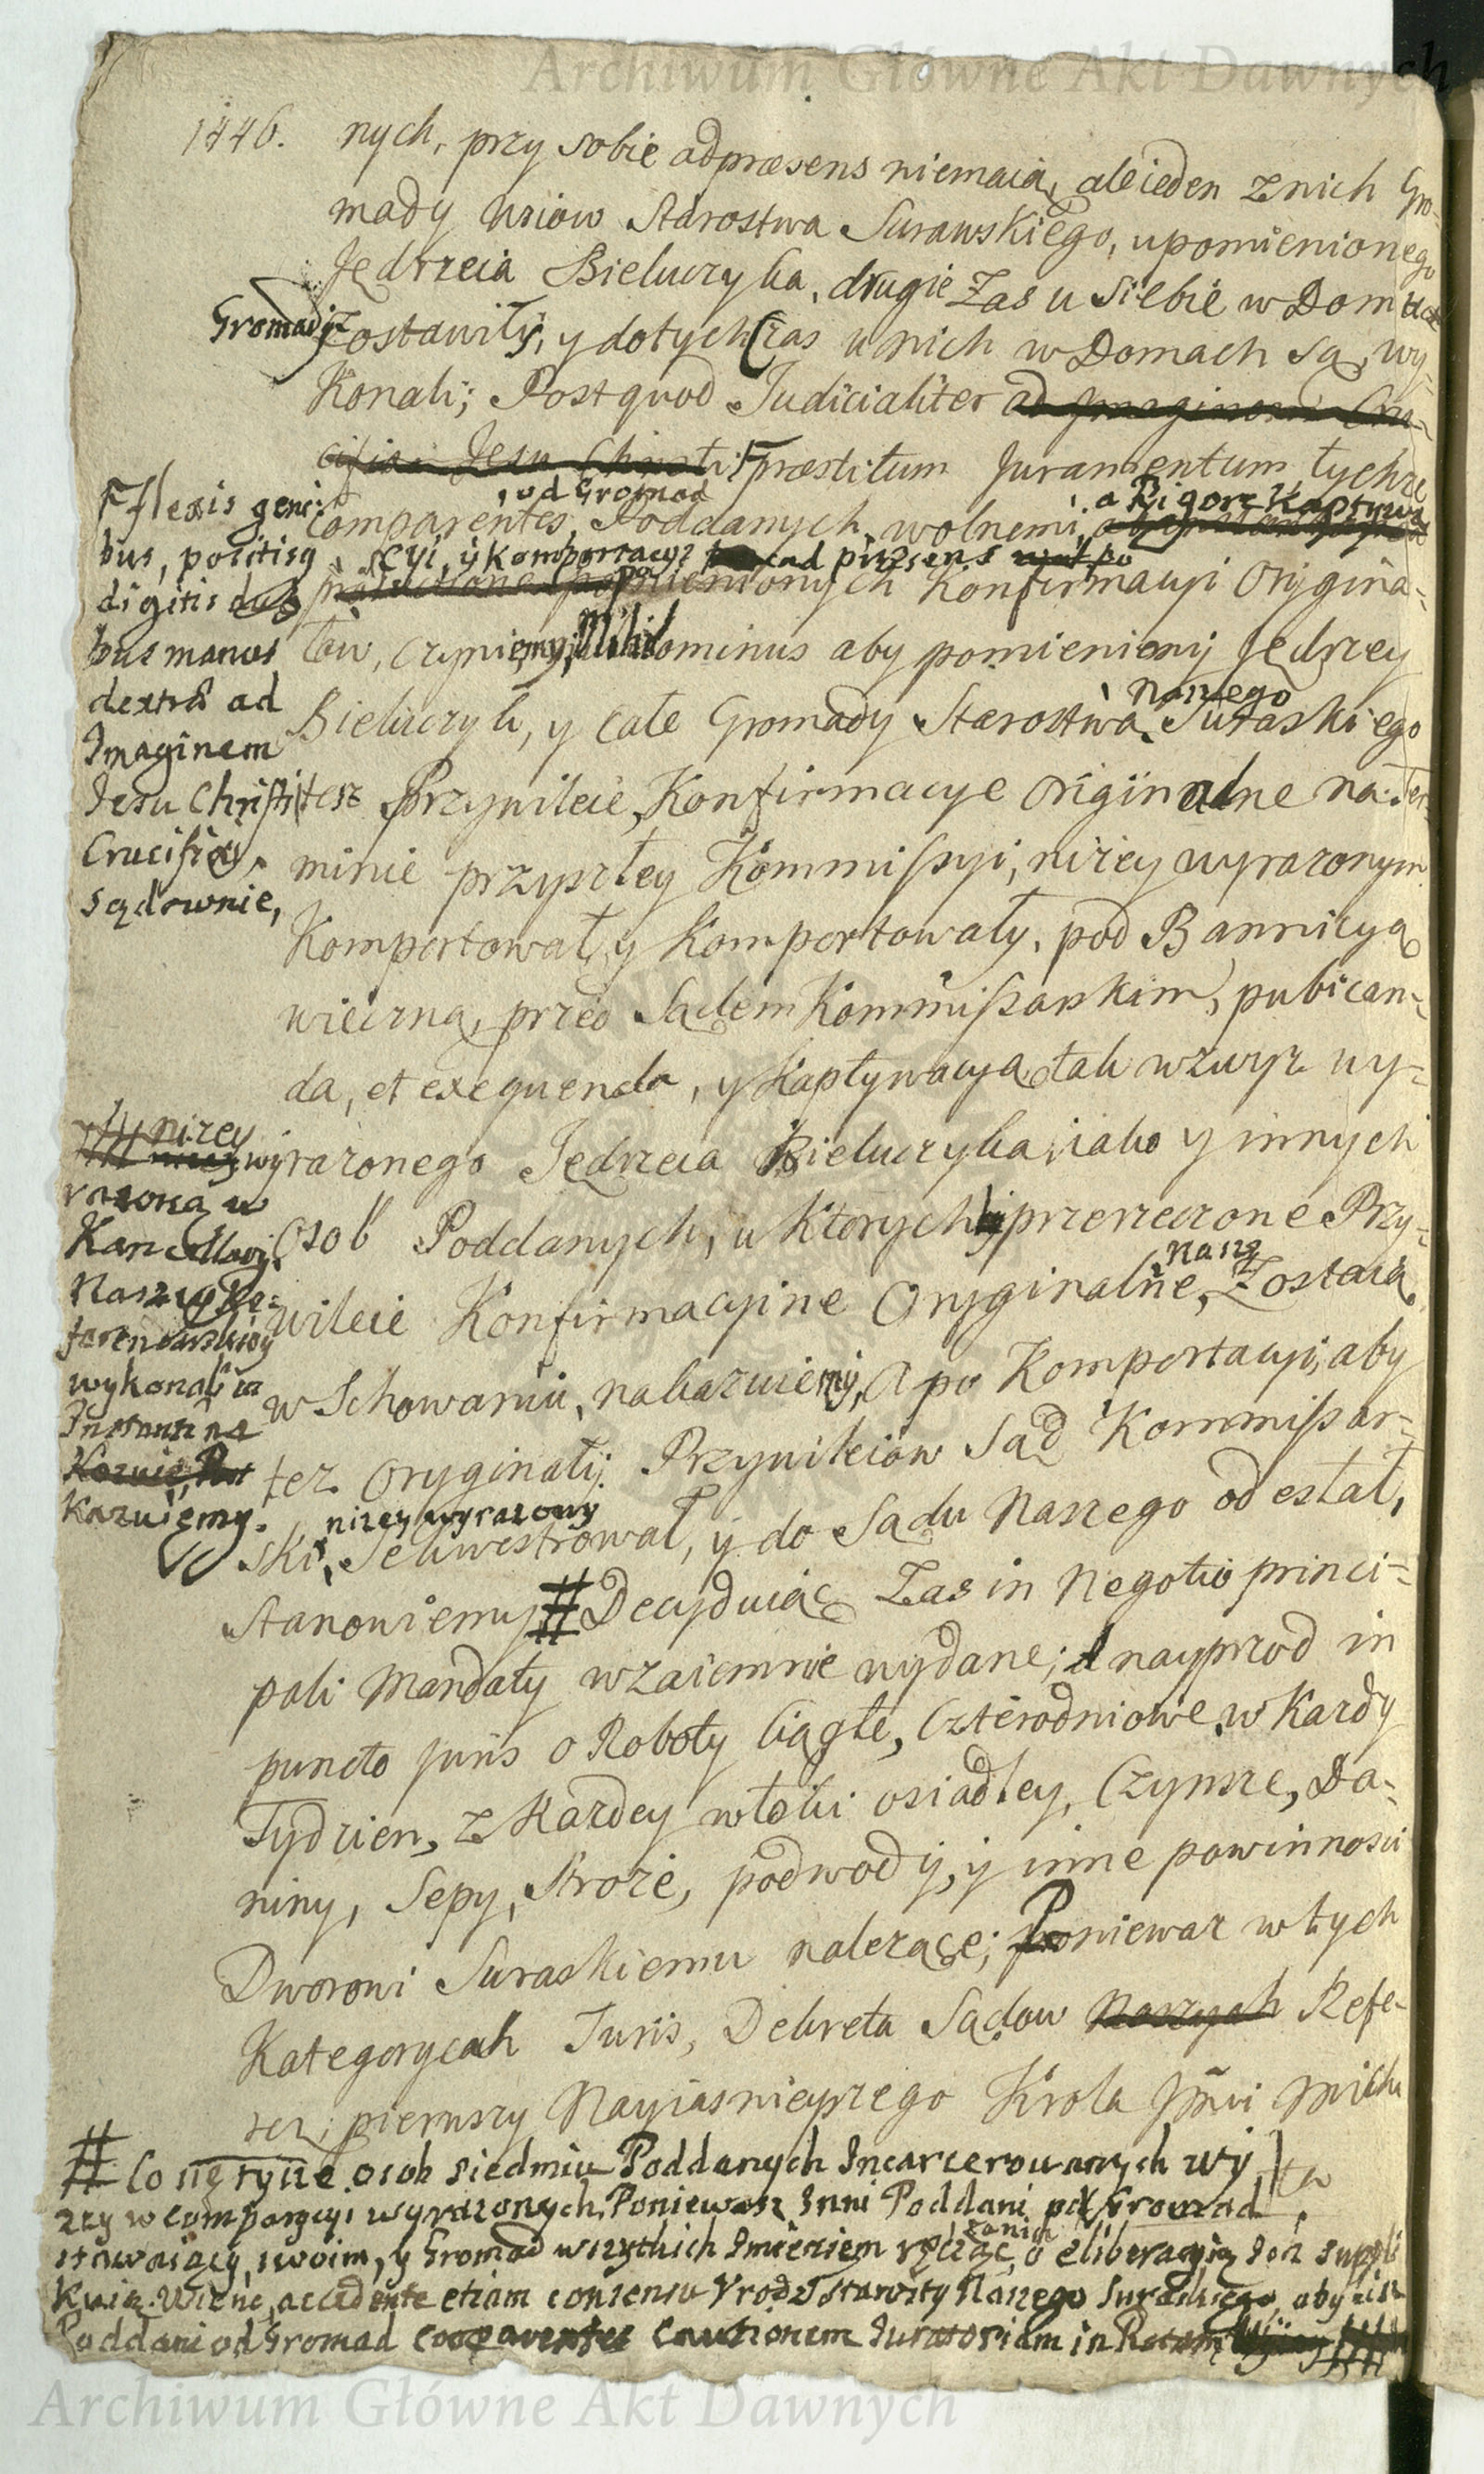 Archiwum Główne Akt Dawnych
1446. nych, przy sobie ad præsens niemaią, ale ieden z nich Gro-
mady Uziow Starostwa Surawskiego, upomienionego
Jędrzeia Bieluczyka, drugie Zas u Siebie w Domach
Gromady Zostawiły, y dotychczas u nich w Domach są, wy=
Konali; Post quod Judicialiter ad Imaginem Cru-
cifixi Jesu Christi præstitum Juramentum tychze
, od Gromad a Rigore Kaptywa
Comparentes, Poddanych, wolnemi,
cyi, y komportacyi ad præsens
pomienionych Konfirmacyi Orygina=
łow, czyniemy, Nihilominus aby pomieniony Jędrzey
Naszego
Bieluczyk, y Całe Gromady Starostwa Suraskiego
tesz Przywileie, Konfirmacye Originalne na Ter-
minie przyszłey Kommissyi, niżey wyrazonym
Komportował, y Komportowały, pod Bannicyą
wieczną, przed Sądem Kommissarskim, pubican-
da, et exequenda, y Kaptywacyą tak wzwyz wy=
razonego Jędrzeia Bieluczyka, iako y innych
Osob Poddanych, u Ktorychby przerzeczone Przy-
Naszą
wileie Konfirmacyine Oryginalne, Zostaią
w Schowaniu, nakazuiemy, A po Komportacyi, aby
tez Oryginały Przywileiow Sąd Kommissar=
niżey wyrazony
ski, Sekwestrował, y do Sądu Naszego odesłał,
Stanowiemy # Decyduiąc Zas in Negotio princi=
pali Mandaty wzaiemnie wydane; A nayprzod in
puncto Juris o Roboty Ciągłe, Czterodniowe, w Kazdy
Tydzien, z Kazdey włoki osiadłey, Czynsze, Da-
niny, Sepy, Stroze, podwody, y inne powinnosci
Dworowi Suraskiemu nalezące; Poniewaz w tych
Kategorycah Juris, Dekreta Sądow Naszych Refe-
pierwszy Nayiasnieyszego Krola Jmci Micha
F flexis geni-
bus, positisq
digitis
bus manus
dextra ad
Imaginem
Jesu Christi
Crucifixi,
sądownie,
niżey
wy
razoną w
Kancellaryi
Naszey Re=
ferendarskiey
wykonali
Kazuiemy.
# Co się tycze osob siedmiu Poddanych Incarcerowanych wy
zey w comparycyi wyrazonych, Poniewasz Inni Poddani od Gromad
stawaiący, swoim, y Gromad wszytkich Imieniem ręcząc za nich, o eliberacyią ich suppli
Kuią. Więc, accedente etiam consensu Urodz Starosty Naszego Suraskiego, aby ciz
Poddani od Gromad comparentes Cautionem Juratoriam in Rotam
Archiwum Główne Akt Dawnych